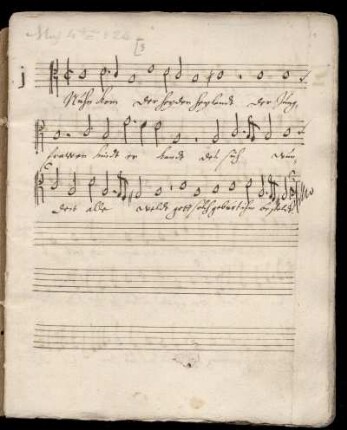 j
Nuhn kom der heyden heylandt der Jung,
frawen kindt er kandt des sich wun,
deit alle weldt gott solch geburt ihm bestelt